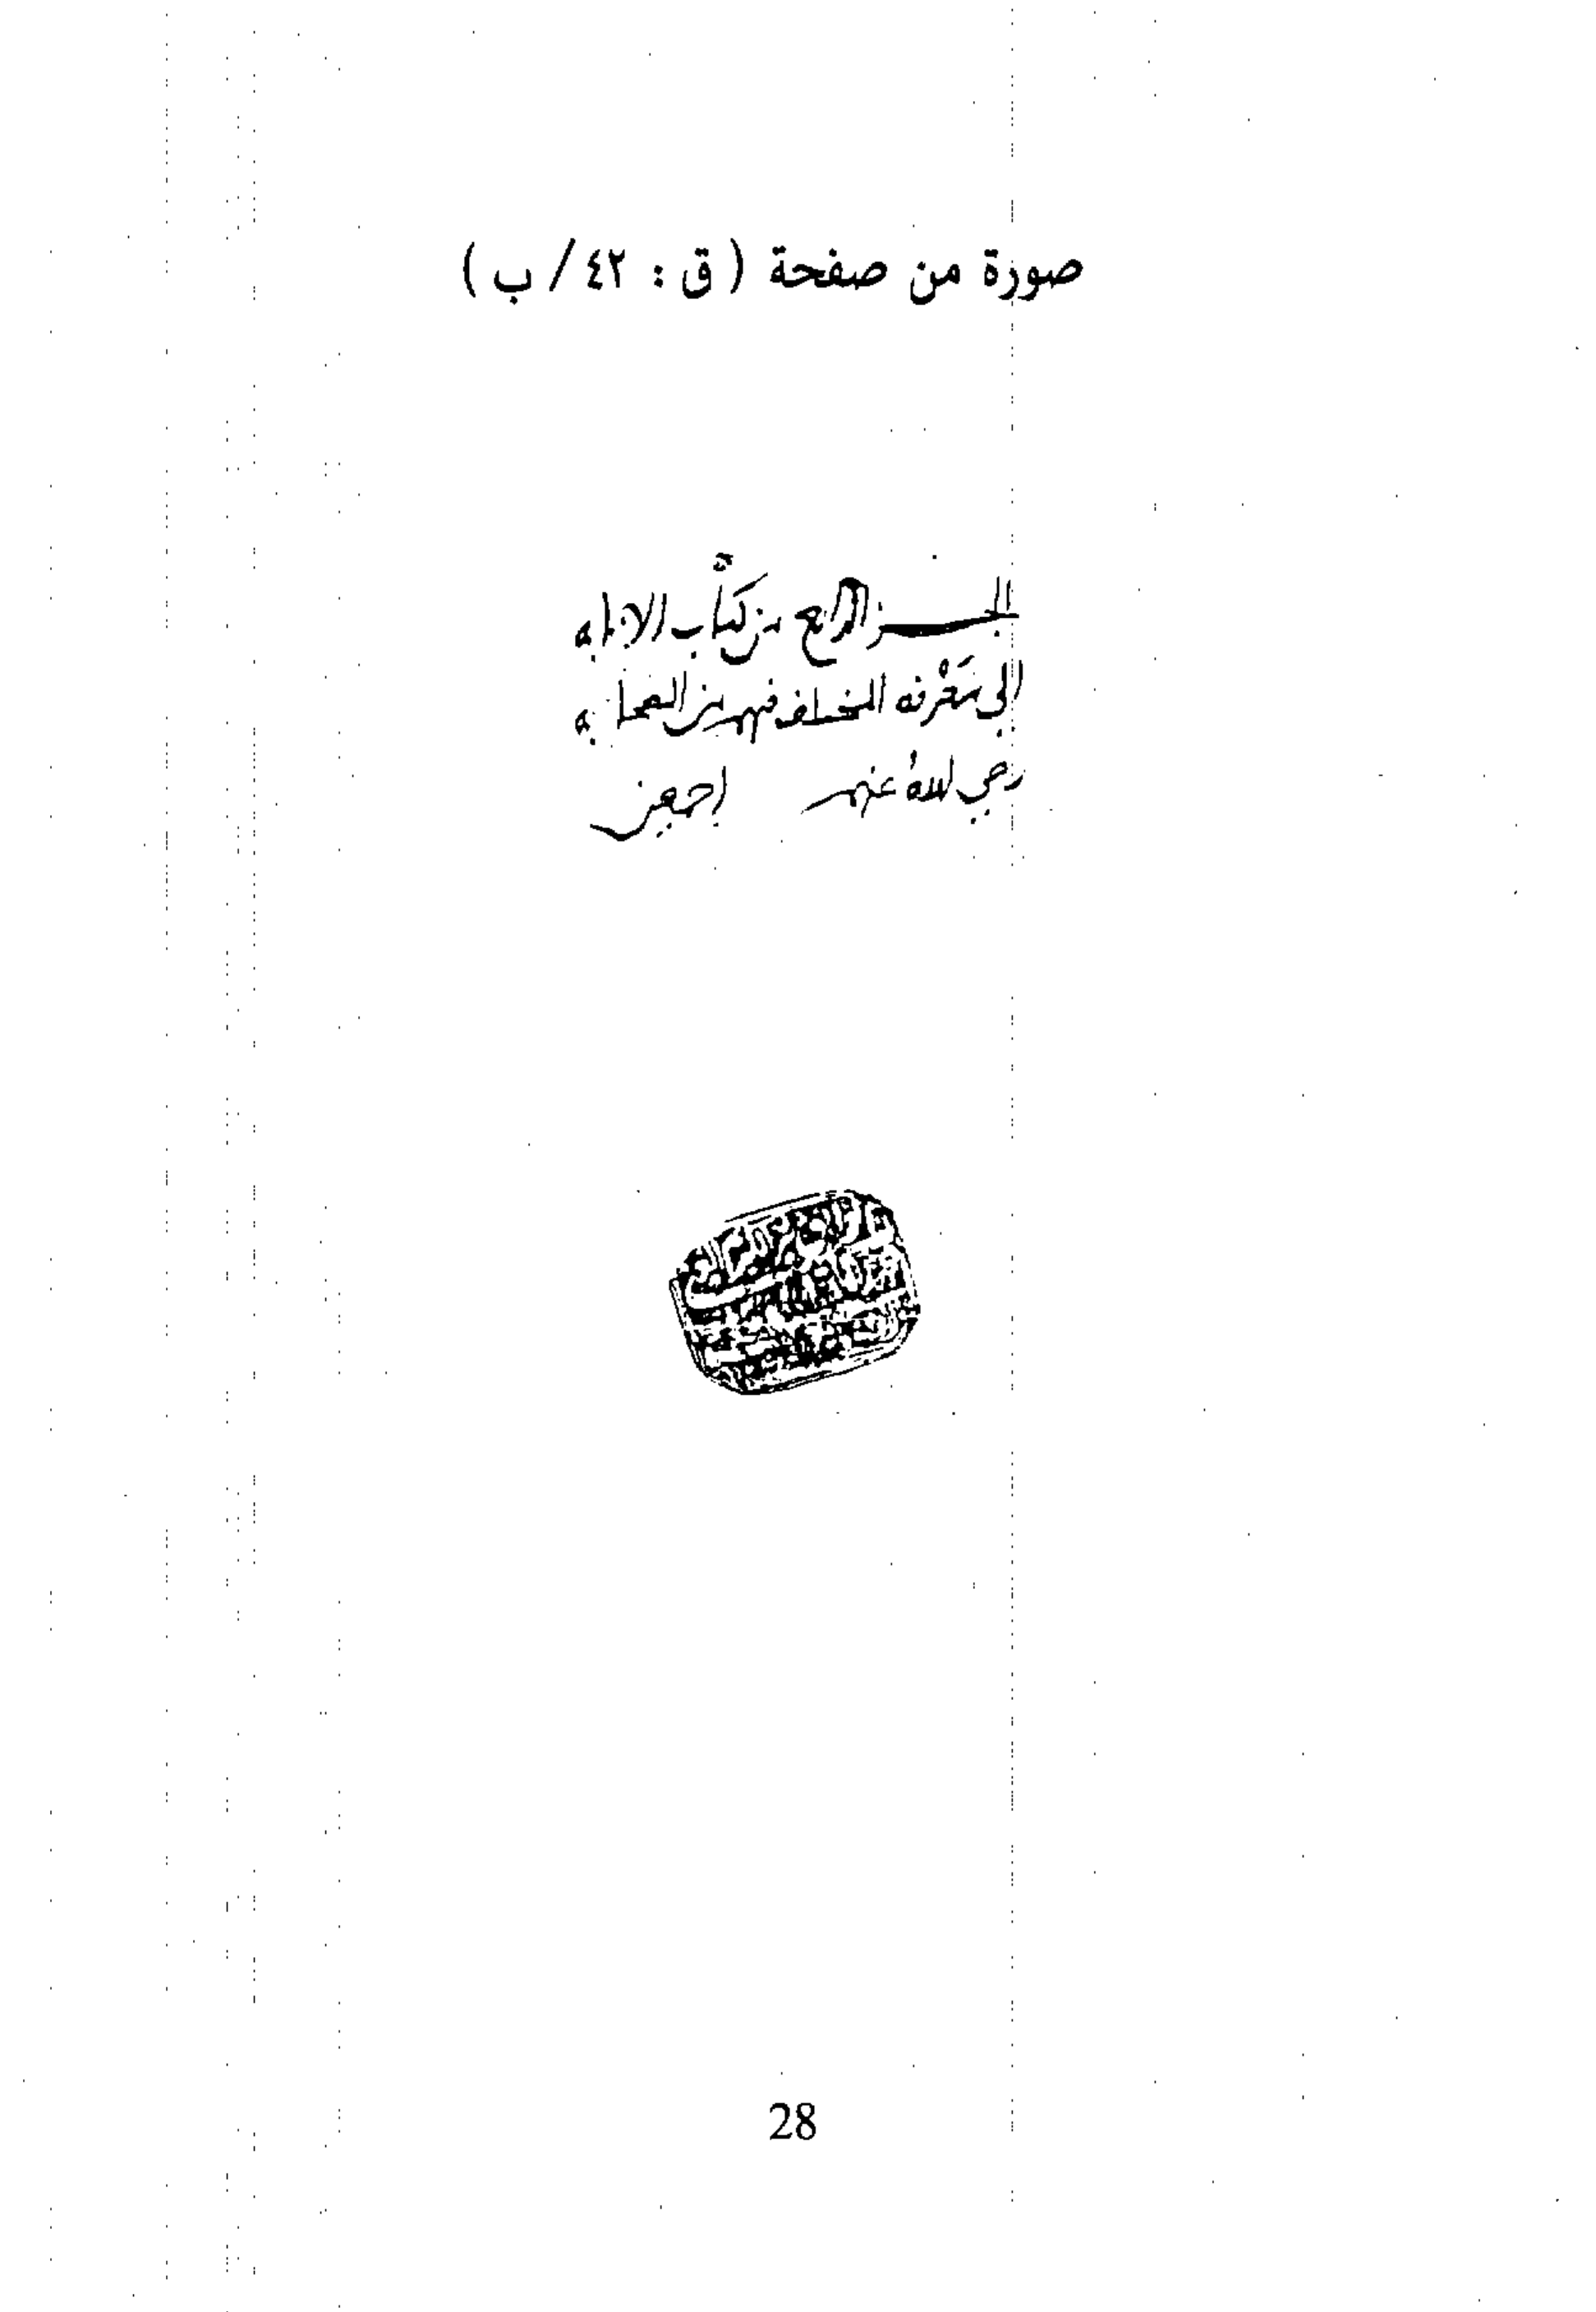 صورة من صفحة ( ق : ٤٢ / ب )
الجـــز الرابع من كتاب الإنابه
الى مَعْرفه المختلف فيهم من الصحابه
رضي الله عنهم اجمعين
28